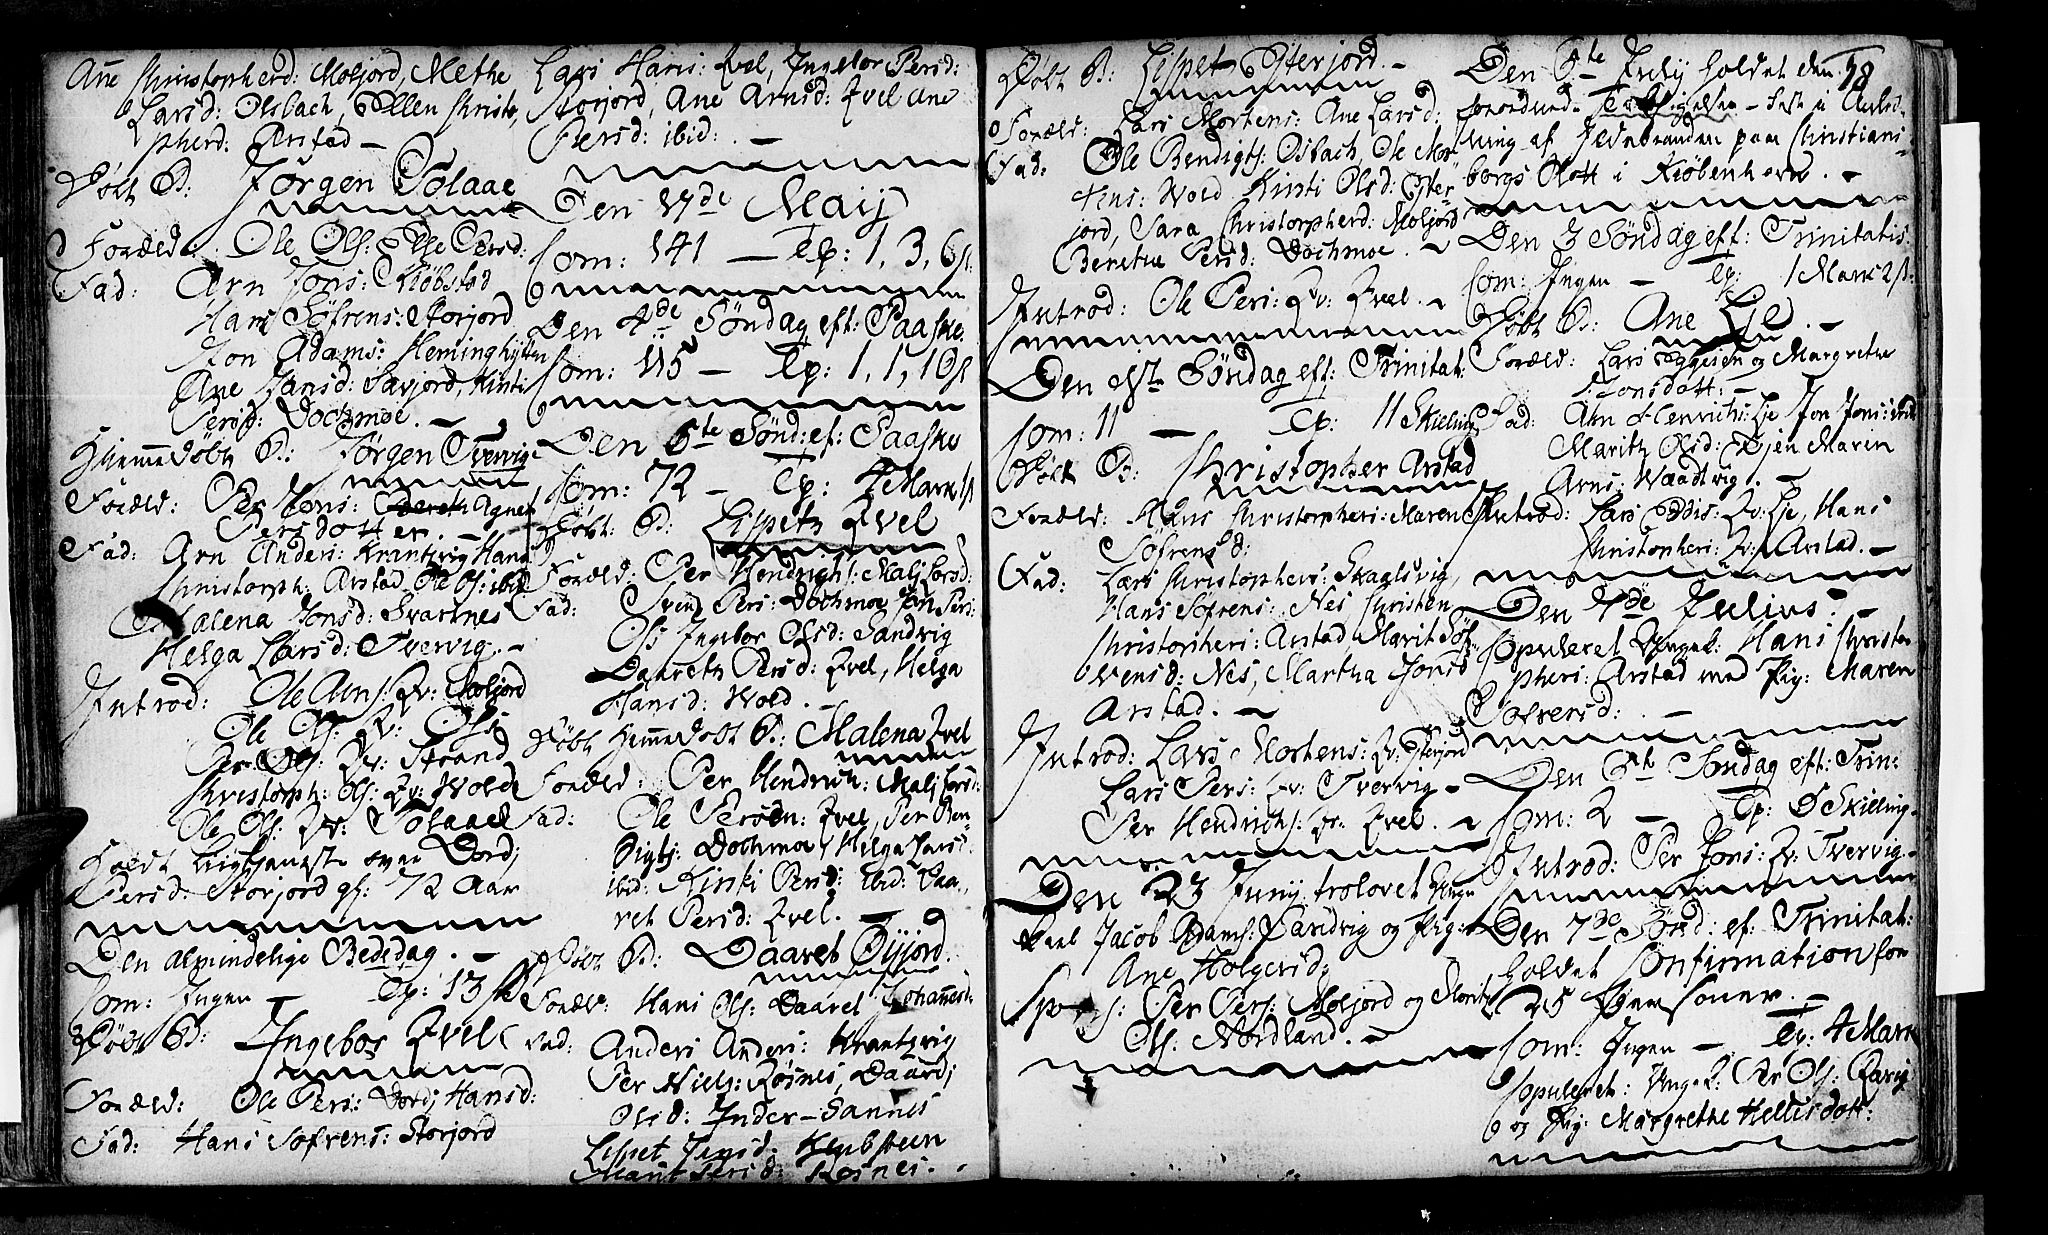 Ane Christopherd: Moljord, Methe
Larsd: Olsbach, Ellen Christo,
pherd: Arstad —
Døbt B: Jørgen Solaae
Foræld: Ole Ols: Else Persd:
Fad: Arn Jons: Kiøbstad
Hans Søfrens: Storjord
Jon Adams: Heminghytten
Ane Jansd: Savjord, Kirsti
Persd: Dochmoe. —
Hiemmedøbt B: Jørgen Tvervig
Foræld: Per Jons: Agnet
Persdotter. —
Fad: Arn Anders: Krantvig Hans
Christoph: Arstad Ole Ols: ibid
Malena Jonsd: Svartnes
Helga Larsd: Tvervig. —
Introd: Ole Arns: Qv: Moljord
Ole Ols: Qv: Ols
Per Ols: Qv: Strand
Christoph: Ols: Qv: Wold
Ole Ols: Qv: Solaae
Holdt Liigtjeneste over Dordj
Persd: Storjord gl: 72 Aar
Den almindelige Bededag. —
Com: Ingen — Tp: 13 s
Døbt B: Ingebor Evel
Foræld: Ole Pers: Dordj Hansd:
Fad: Hans Søfrens: Storjord
Lars Hans: Evel, Ingebor Persd:
Storjord, Ane Arnsd: Evel Ane
Persd: ibid: —
Den 17de Maij
Com: 141 — Tp: 1, 3, 6 s
Den 4de Søndag eft: Paaske.
Com: 115 — Tp: 1, 1, 10 s
Den 5te Sønd: ef: Paaske
Com: 72 — Tp: 4 Mark
Døbt: B: Lispeth Evel
Foræld: Per Hendrichs: Malj Larsd:
Fad: Svend Pers: Dochmoe Jon Pers:
Ols Ingebor Olsd: Sandvig
Daareth Persd: Evel, Helga
Hansd: Wold. —
Døbt Hiemmedøbt B: Malena Evel
Foræld: Per Hendrich: Malj Larsd:
Fad: Ole Persøn: Evel, Per Ben„
digts: Dochmoe, Helga Jansd:
ibid: Kirsti Persd: Ibid: Daa„
ret Persd: Evel. —
Døbt B: Daaret Øyjord.
Foræld: Hans Ols: Daaret Johannesd:
Fad: Anders Anders: Krantvig
Per Niels: Røsnes, Daardj
Olsd: Inder-Sannes
Lisbet Jensd: Klubsteen
Marit Persd: Røsnes.
18
Døbt B: Lispet Ytterjord. —
Foræld: Lars Mortens: Ane Larsd:
Fad: Ole Bendigts: Osbach, Ole Mor„
tens: Wold Kirsti Olsd: Ytter„
jord, Sara Christopherd: Moljord
Beretha Persd: Dochmoe. —
Introd: Ole Pers: Qv: Evel. —
Den 1ste Søndag eft: Trinitat:
Com: 11 — Tp: 11 Skilling
Døbt B: Christopher Arstad
Foræld: Hans Christophers: Maren
Søfrensd:
Fad: Lars Christophers: Skaglsvig,
Hans Søfrens: Nes Christen
Christophers: Arstad Marit Søf„
rensd: Nes, Martha Jonsd
Arstad. —
Introd: Lars Mortens: Qv: Ytterjord
Lars Pers: Qv: Tvervig —
Per Hendrichs: Qv: Evel. —
Den 23 Junij trolovet Unge
Karl Jacob Adams: Sandvig og Pig:
Ane Holgersd;
Per Pers: Moljord og Marit
Ols: Nordland. —
Den 5te July holdet den
forordnede Taksigelses-Fest i Anled„
ning af Ildebranden paa Christians„
borgs Slott i Kiøbenhavn. —
Den 3 Søndag eft: Trinitatis.
Com: Ingen — Tp: 1 Mark 2 s.
Døbt B: Ane Lje. —
Foræld: Lars Eggesen og Margrethe
Jonsdott: —
Fad: Arn Henrichs: Lje Jon Jons: ibid
Marith Olsd: Marin
Arns: Waadtvig. —
Introd: Lars Eddis: Qv: Lje, Hans
Christophers: Qv: Arstad. —
Den 4de Julius.
Copuleret Ungel: Hans Christo„
phers: Arstad med Pig: Maren
Søfrensd: —
Den 5te Søndag eft: Trin:
Com: 2 — Tp: 8 Skilling.
Introd: Per Jons: Qv: Tvervig. —
Den 7de Sønd: ef: Trinitat:
holdet Confirmation for
25 Personer. —
Com: Ingen — Tp: 4 Mark
Copuleret: Unge K: Per Ols:
og Pig: Margrethe Hellesdott: